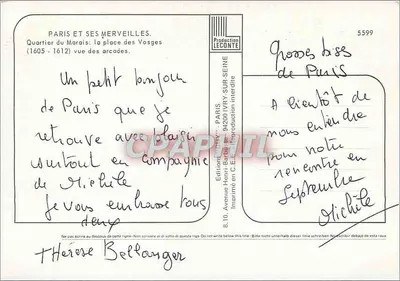 PARIS ET SES MERVEILLES.
Quartier du Marais: la place des Vosges
(1605 - 1612) vue des arcades.
Un petit bonjour
de Paris que je
retrouve avec plaisir
surtout en compagnie
de Michèle
Je vous embrasse tous
deux
Thérèse Bellanger
L
Production
LECONTE
PARIS
8,10, Avenue Henri-Barbusse 94200 IVRY-SUR-SEINE
Imprimé en C.E.E. Reproduction interdite
5599
Grosses bises
de Paris
A bientôt de
nous entendre
pour notre
rencontre en
Septembre
Michèle
CPAPHIL